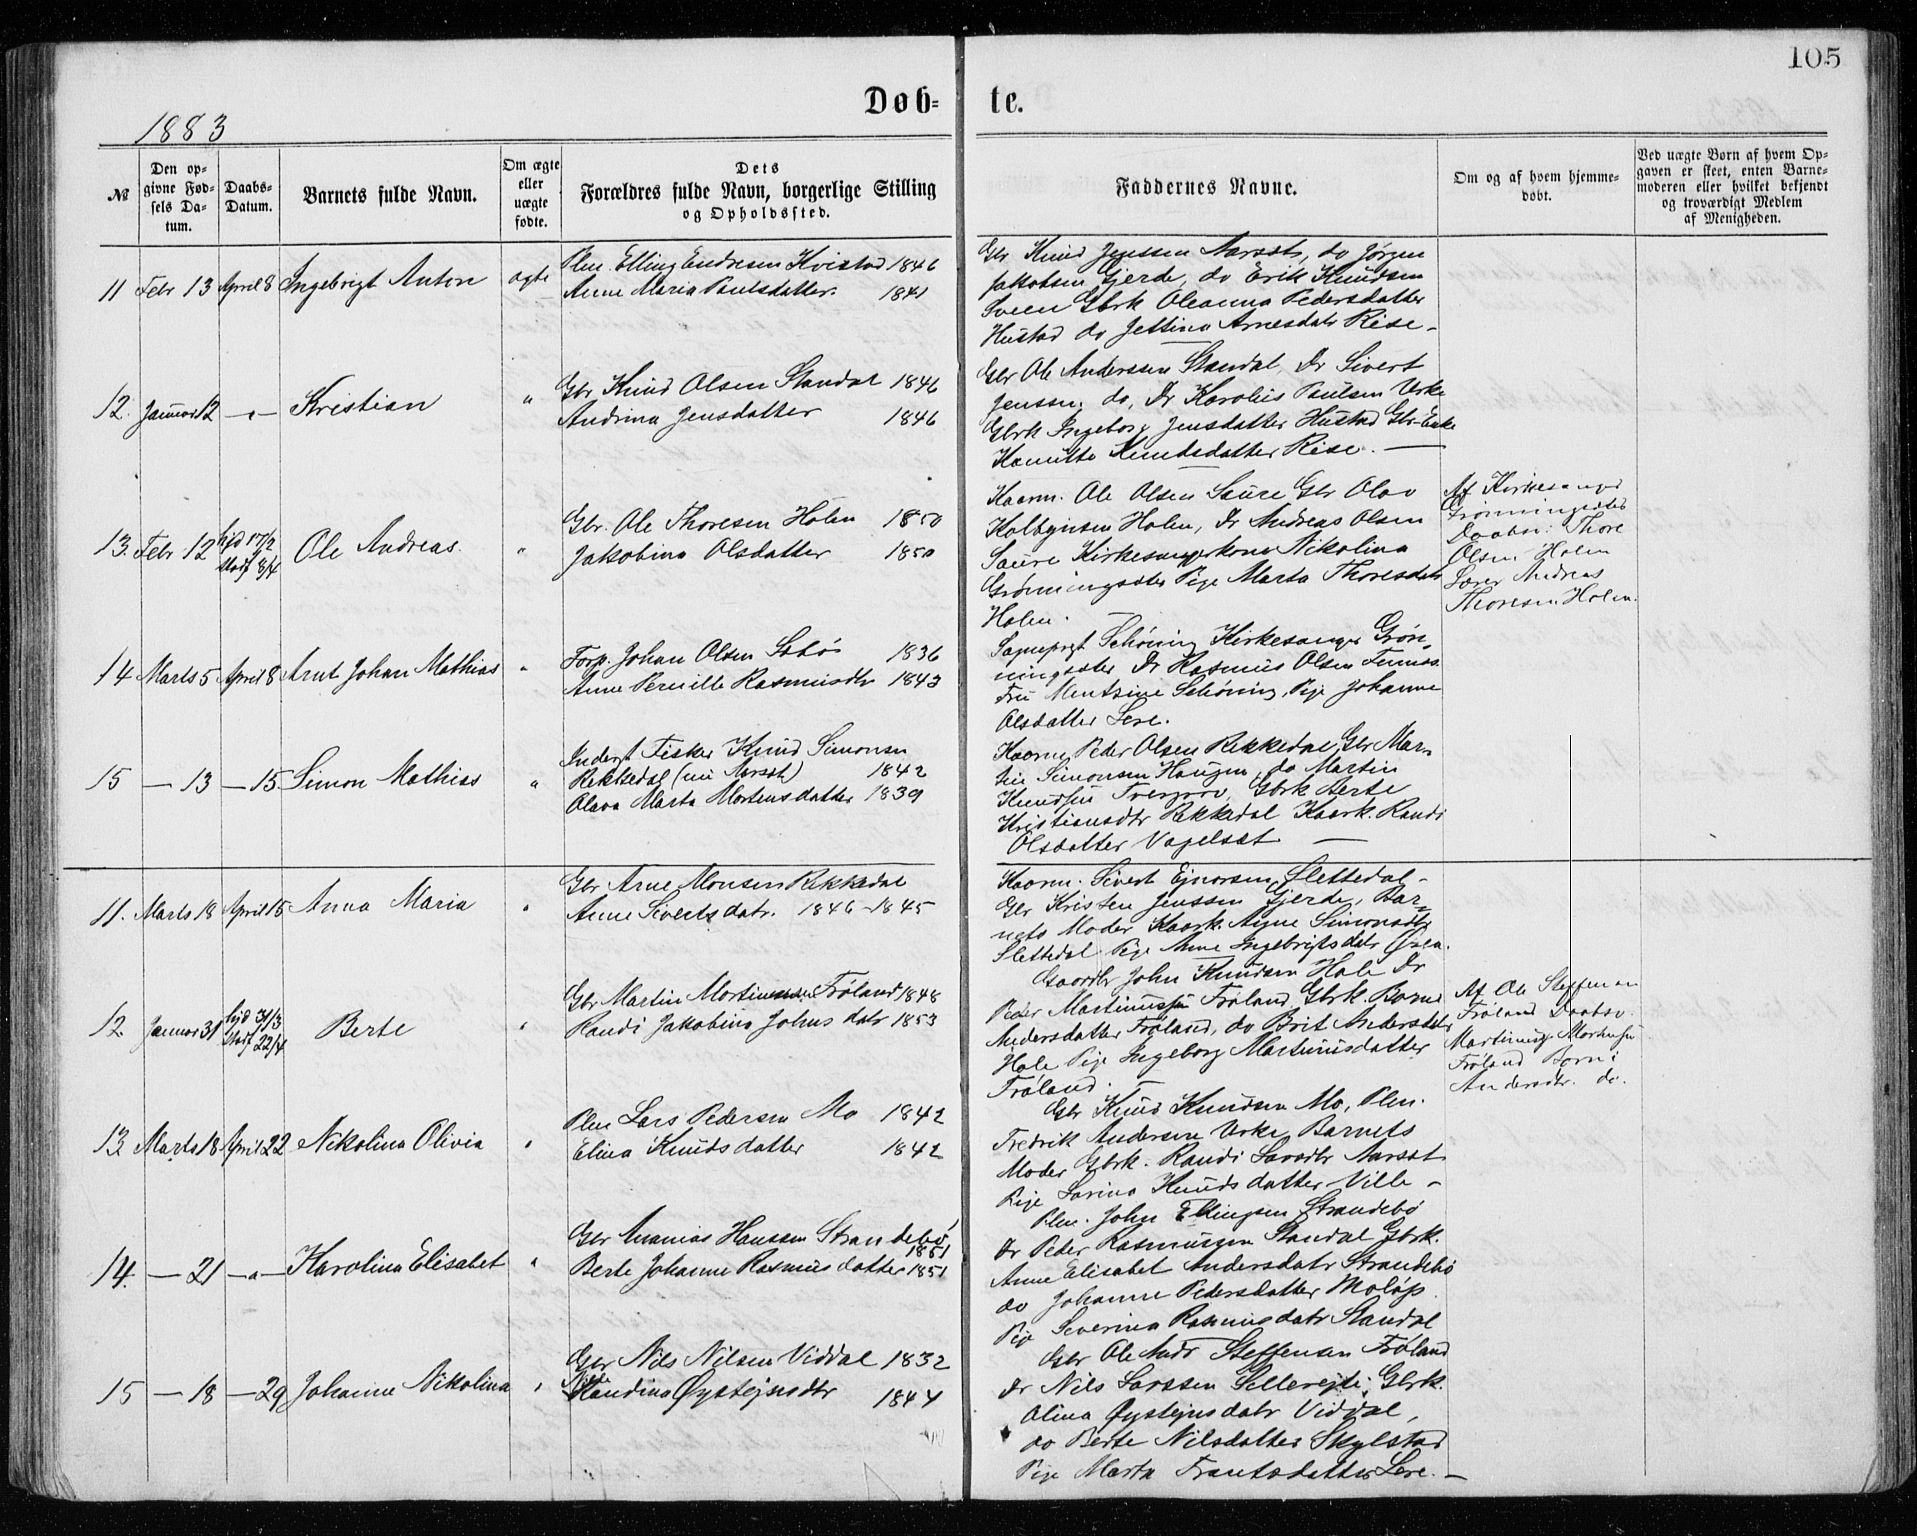 105
Døb= te.
1883
№
Den op=
givne Fød=
sels Da=
tum.
Daabs=
Datum.
Barnets fulde Navn.
Om ægte
eller
uægte
fødte.
Dets
Forældres fulde Navn, borgerlige Stilling
og Opholdssted.
Faddernes Navne.
Om og af hvem hjemme=
døbt.
Ved uægte Børn af hvem Op=
gaven er skeet, enten Barne=
moderen eller hvilket bekjendt
og troværdigt Medlem
af Menigheden.
11 Febr 13 April 8 Ingebrigt Anton ægte
Plsm. Elling Endresen Kvistad 1846
Anne Maria Paulsdatter. 1841
Gbr Knud Jenssen Aarset, do Jørgen
Jakobsen Gjerde, do Erik Knudsen
Sveen Gbrk Oleanna Pedersdatter
Hustad do Jettina Arnesdatr Rise –
12. Januar 12 –"– Kristian "
Gbr Knud Olsen Standal 1846
Andrina Jensdatter 1846
Gbr Ole Anderssen Standal, Dr Sivert
Jenssen do, Dr Karolus Paulsen Urke
Gbrk Ingeborg Jensdatter Hustad Gbr-Enke
Knudsdatter Rise. –
13. Febr 12 hjd 17/2
stadf 8/4 Ole Andreas. "
Gbr. Ole Thoresen Holen 1850
Jakobina Olsdatter 1850
Kaarm. Ole Olsen Saure Gbr Olav
Kolbejnsen Holen, Dr Andreas Olsen
Saure Kirkesangerkone Nikolina
Grønningsæter Pige Marta Thoresdatr
Holen.
Af Kirkesanger
Grønningsæter
Daabsv: Thore
Olsen Holen
Lærer Andreas
Thoresen Holen.
14 Marts 5 April 8 Arnt Johan Mathias "
Forp. Johan Olsen Sæbø 1836
Anne Pernille Rasmusdtr 1843
Sognepræst Schøning Kirkesanger Grøn-
ningsæter Dr Rasmus Olsen
Fru Mentzine Schøning, Pige Johanne
Olsdatter Lere.
15 – 13 – 15 Simon Mathias "
Inderst Fisker Knud Simonsen
Rekkedal (nu Aarset) 1842
Olava Marta Mortensdatter 1839
Kaarm Peder Olsen Rekkedal, Gbr Mar-
Simonsen Haugen, do Martin
Knudsen Gbrk Berte
Kristiansdtr Rekkedal Kaark. Randi
Olsdatter Vagelsæt –
11. Marts 18 April 15 Anna Maria "
Gbr Arne Monsen Rekkedal
Anne Sivertsdatr. 1846 – 1845
Kaarm. Sivert Ejnarsen Slettedal –
Gbr Kristen Jenssen Gjerde, Bar-
nets Moder Kaark. Agne Simonsdtr
Slettedal Pige Anne Ingebrigtsdatr Øsen.
12 Januar 31 hjd 31/3
stadf 22/4 Berte "
Gbr Martin Martinussen Frøland 1848
Randi Jakobina Johnsdatr 1853
Gaardbr John Knudsen Hole Dr
Peder Martinussen Frøland Gbrk. Borni
Andersdatter Frøland, do Brit Andersdatr
Hole Pige Ingeborg Martinusdatter
Frøland.
Af Ole Steffensen
Frøland Daabsv.
Martinus Mortensen
Frøland Borni
Andersdtr. do.
13 Marts 18 April 22 Nikolina Olivia "
Plsm Lars Pedersen Mo 1842
Elina Knudsdatter 1842
Gbr Knud Knudsen Mo, Plsm.
Fredrik Andersen Urke Barnets
Moder Gbrk. Randi Larsdtr Aarset
Pige Larina Knudsdatter Ville –
14. – 21 –"– Karolina Elisabet "
Gbr Ananias Hanssen Strandebø
1851
Berte Johanne Rasmusdatter 1851
Plsm. John Ellingsen Strandebø
Dr Peder Rasmussen Standal Gbrk.
Anne Elisabet Andersdatr Strandebø
do Johanne Pedersdatter Moløs
Pige Severina Rasmusdatr Standal
15 – 18 – 29 Johanne Nikolina "
Gbr Nils Nilsen Viddal 1832
Øystejnsdtr 1844
Gbr Ole Andr Steffensen Frøland
Dr Nils Larssen Gbrk.
Olina Øystejnsdatr Viddal,
do Berte Nilsdatter Skylstad
Pige Marta Frantsdatter Lere. –